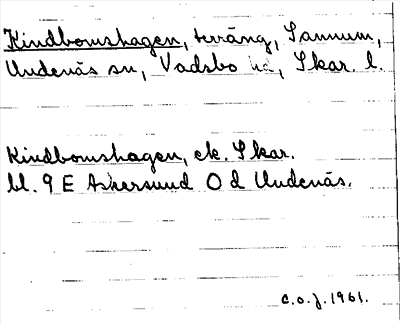 Kindbomshagen, terräng, Sannum,
Undenäs sn, Vadsbo hd, Skar. l.
Kindbomshagen, ek. Skar.
bl. 9 E Askersund O d Undenäs.
C.O.J. 1961.